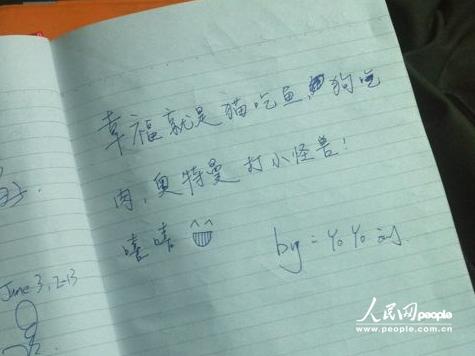 幸福就是猫吃鱼，狗吃
肉，奥特曼打小怪兽！
嘻嘻
by = yo yo 刘.
June 3, 2013
人民网people
www.people.com.cn